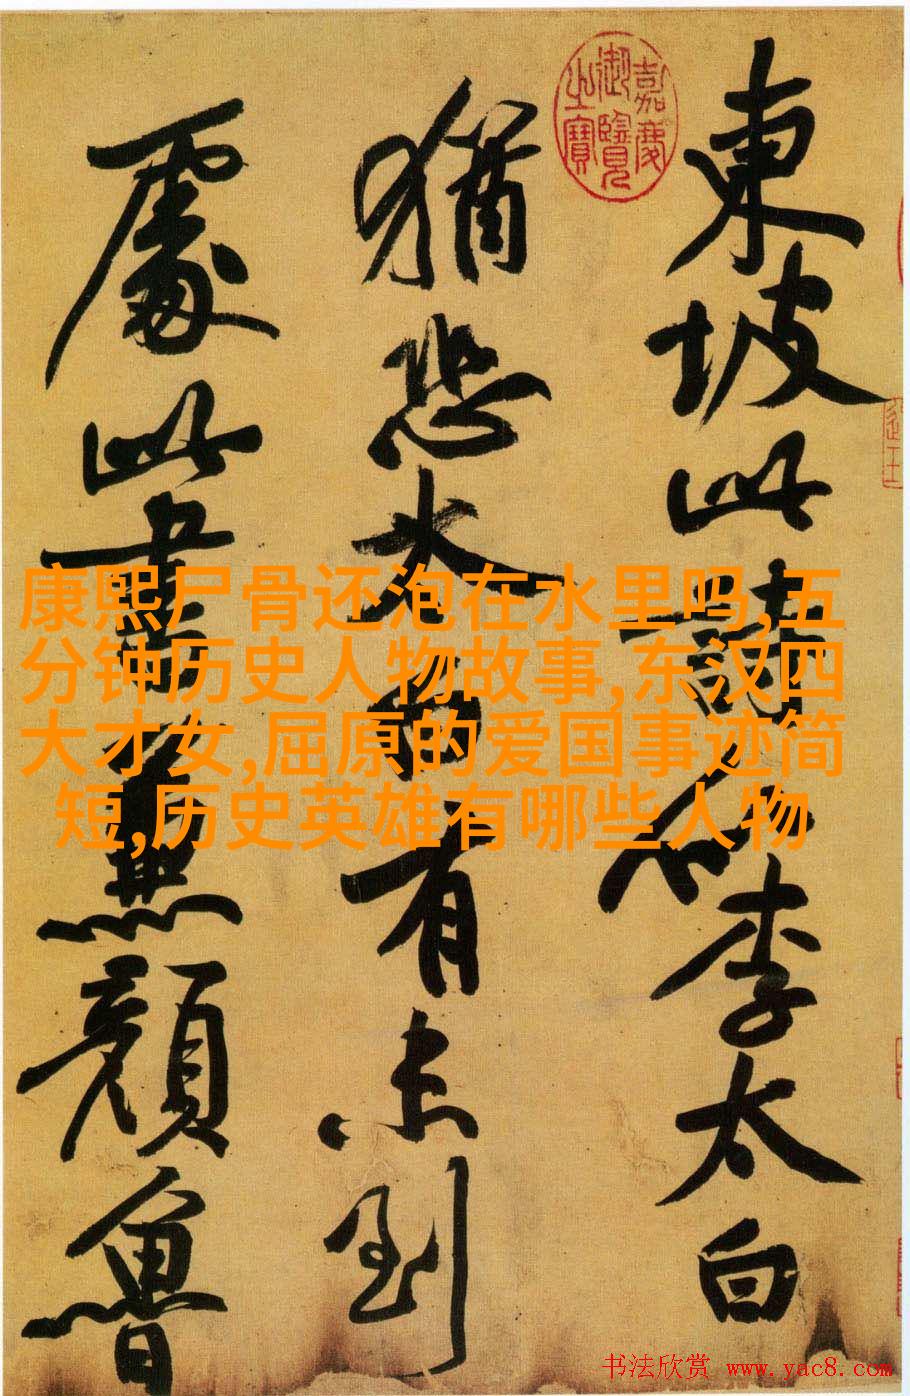 東坡此詩似李太白
猶恐太白有未到
處此書兼顏魯
嘉慶
御覽
之寶
康熙尸骨还泡在水里吗,五
分钟历史人物故事,东汉四
大才女,屈原的爱国事迹简
短,历史英雄有哪些人物
书法欣赏 www.yac8.com